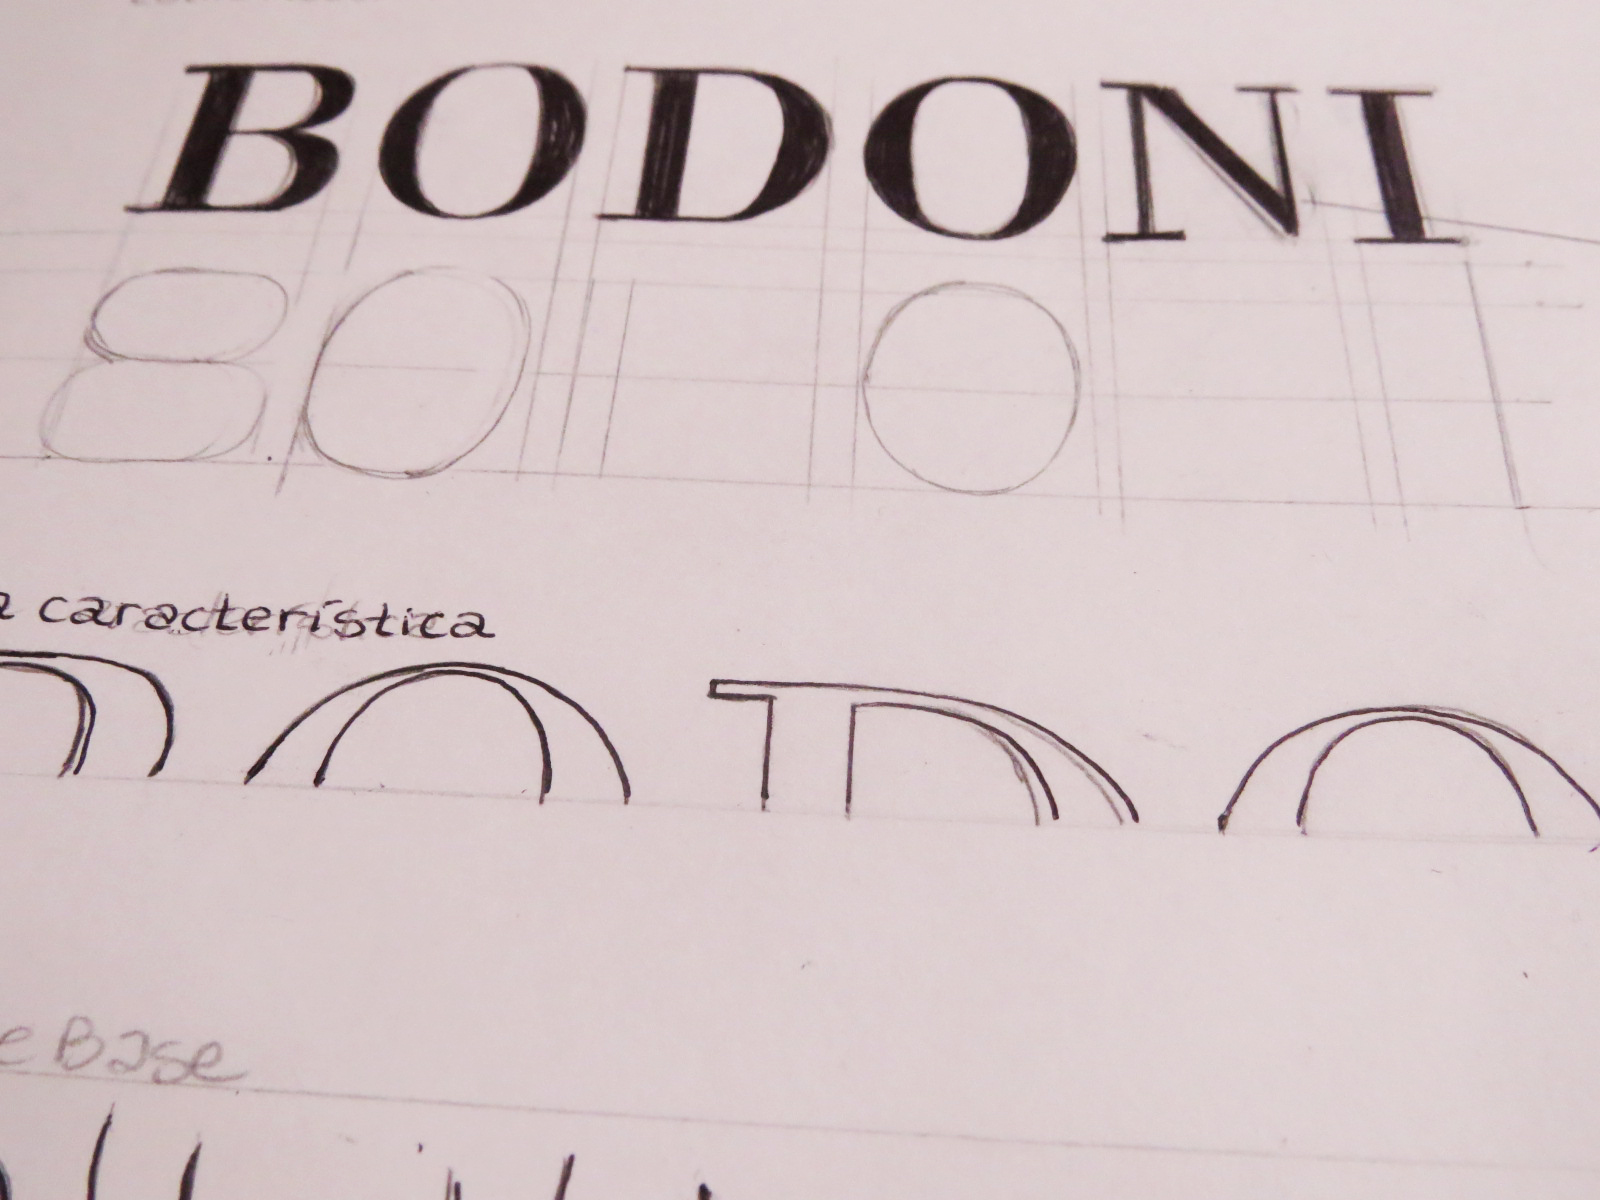 BODONI
a característica
BODO
e Base